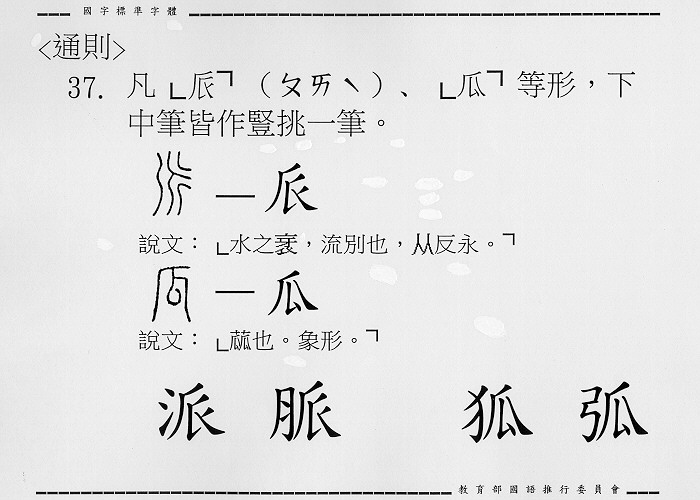 國字標準字體
<通則>
37. 凡「𠂢」（ㄆㄞˋ）、「瓜」等形，下
中筆皆作豎挑一筆。
— 𠂢
說文：「水之衺，流別也，从反永。」
— 瓜
說文：「蓏也。象形。」
派 脈 狐 弧
教育部國語推行委員會